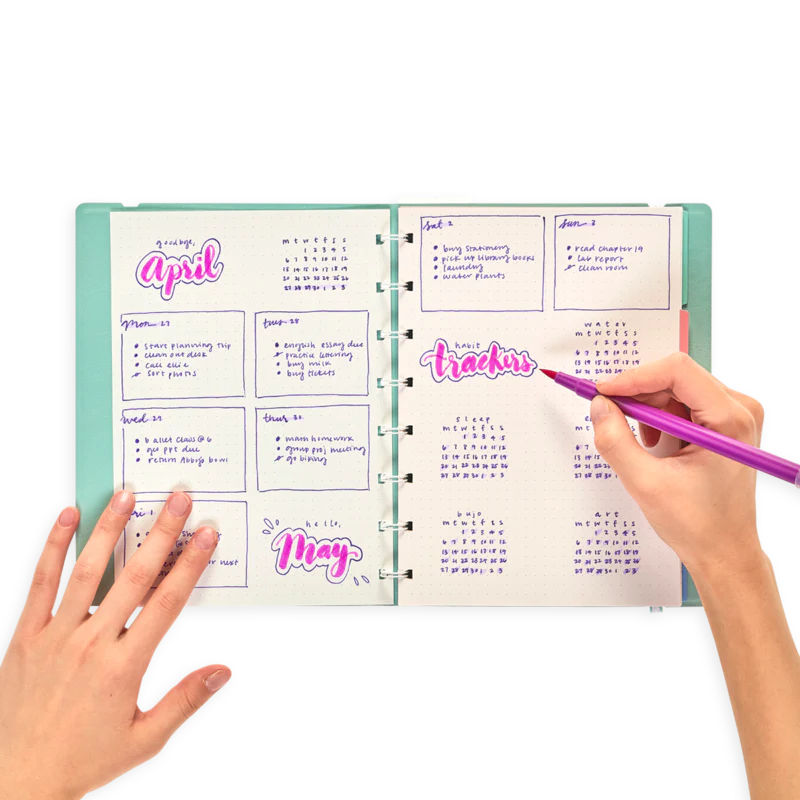 goodbye,
April
m t w t f s s
1 2 3 4 5
6 7 8 9 10 11 12
13 14 15 16 17 18 19
20 21 22 23 24 25 26
27 28 29 30 1 2 3
mon 27
start planning trip
clean out desk
call ellie
sort photos
tues 28
english essay due
practice lettering
buy milk
buy tickets
wed 29
ballet class @ 6
gov ppt due
return Abby's bowl
thur 30
math homework
group proj meeting
go biking
fri 1
or next
hello,
May
sat 2
buy stationery
pick up library books
laundry
water plants
sun 3
read chapter 19
lab report
clean room
habit
trackers
water
m t w t f s s
1 2 3 4 5
6 7 8 9 10 11 12
13 14 15 16 17 18 19
sleep
m t w t f s s
1 2 3 4 5
6 7 8 9 10 11 12
13 14 15 16 17 18 19
20 21 22 23 24 25 26
27 28 29 30 1 2 3
bujo
m t w t f s s
1 2 3 4 5
6 7 8 9 10 11 12
13 14 15 16 17 18 19
20 21 22 23 24 25 26
27 28 29 30 1 2 3
art
m t w t f s s
1 2 3 4 5
6 7 8 9 10 11 12
13 14 15 16 17 18 19
20 21 22 23 24 25 26
27 28 29 30 1 2 3